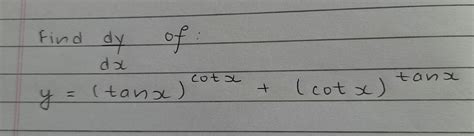 Find dy/dx of :
y = (tanx)^cotx + (cotx)^tanx